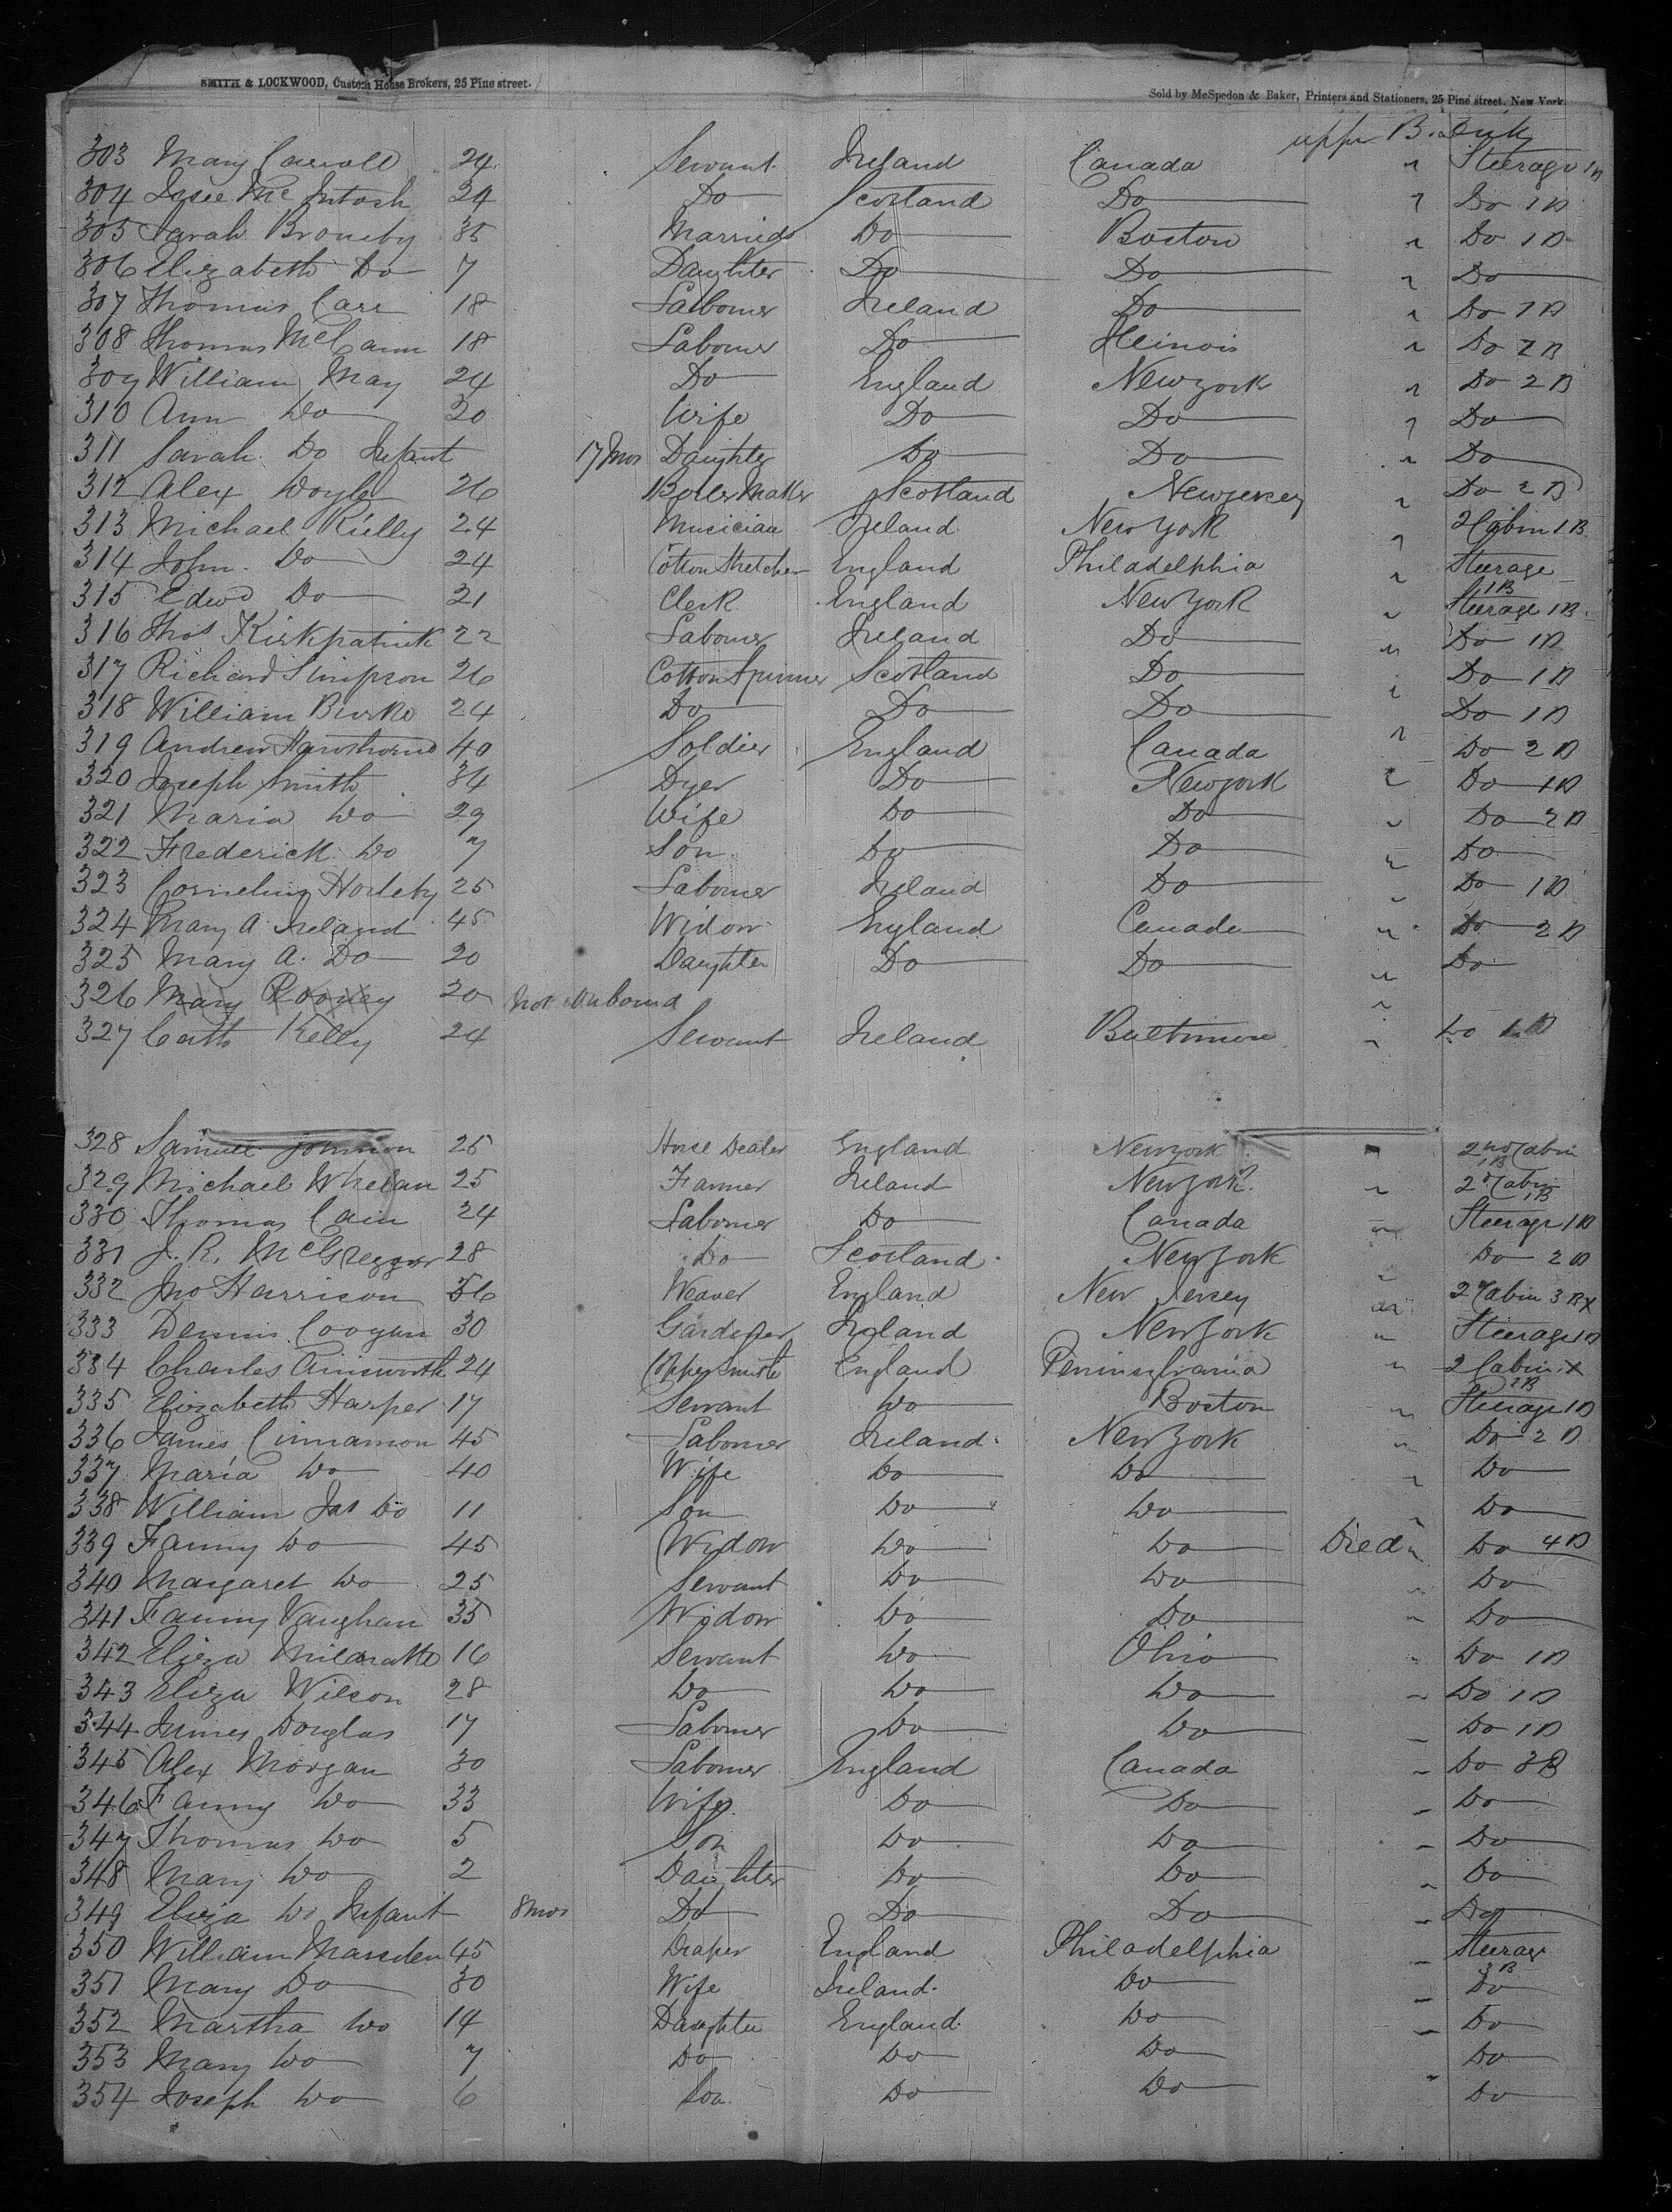 SMITH & LOCKWOOD, Custom House Brokers, 25 Pine street.
Sold by McSpedon & Baker, Printers and Stationers, 25 Pine street, New York.
upper B. Deck
303 Mary Carroll 24 Servant Ireland Canada " Steerage 1B
304 Issee McIntosh 24 Do Scotland Do " Do 1B
305 Sarah 35 Married Do Boston " Do 1B
306 Elizabeth Do 7 Daughter Do Do " Do
307 Thomas Carr 18 Labourer Ireland Do " Do 1B
308 Thomas McCann 18 Labourer Do Illinois " Do 2B
309 William May 24 Do England Newyork " Do 2B
310 Ann Do 30 Wife Do Do " Do
311 Sarah Do Infant 17 Mos Daughter Do Do " Do
312 Alex Doyle 26 Boiler Maker Scotland Newjersey " Do 2B
313 Michael Kielly 24 Musician Ireland New York " 2 Cabin 1B
314 John Do 24 Cotton Stretcher England Philadelphia " Steerage 1B
315 Edwd Do 21 Clerk England New York " Steerage 1B
316 Thos Kirkpatrick 22 Labourer Ireland Do " Do 1B
317 Richard Simpson 26 Cotton Spinner Scotland Do " Do 1B
318 William Burke 24 Do Do Do Do 1B
319 Andrew Hawthorne 40 Soldier England Canada " Do 2B
320 Joseph Smith 34 Dyer Do Newyork " Do 1B
321 Maria Do 29 Wife Do Do " Do 2B
322 Frederick Do 7 Son Do Do " Do
323 Cornelius 25 Labourer Ireland Do " Do 1B
324 Mary A Ireland 45 Widow England Canada " Do 2B
325 Mary A. Do 20 Daughter Do Do " Do
326 Mary Rooney 20 not on board "
327 Cath Kelly 24 Servant Ireland Baltimore " Do 1B
328 Samuel Johnson 25 Horse Dealer England Newyork " 2nd Cabin 1B
329 Michael Whelan 25 Farmer Ireland New York " 2d Cabin 1B
330 Thomas Cain 24 Labourer Do Canada " Steerage 1B
331 J. R. McGreggor 28 Do Scotland New York " Do 2B
332 Jno Harrison 56 Weaver England New Jersey " 2 Cabin 3B x
333 Dennis Coogan 30 Gardener Ireland New York " Steerage 1B
334 Charles Ainsworth 24 Copper Smith England Peninsylvania " 2 Cabin x 2B
335 Elizabeth Harper 17 Servant Do Boston " Steerage 1B
336 James Cinnamon 45 Labourer Ireland New York " Do 2B
337 Maria Do 40 Wife Do Do " Do
338 William Jas Do 11 Son Do Do " Do
339 Fanny Do 45 Widow Do Do Died " Do 4B
340 Margaret Do 25 Servant Do Do " Do
341 Fanny Vaughan 35 Widow Do Do " Do
342 Eliza 16 Servant Do Ohio " Do 1B
343 Eliza Wilson 28 Do Do Do " Do 1B
344 James Douglas 17 Labourer Do Do " Do 1B
345 Alex Morgan 30 Labourer England Canada " Do 3B
346 Fanny Do 33 Wife Do Do " Do
347 Thomas Do 5 Son Do Do " Do
348 Mary Do 2 Daughter Do Do " Do
349 Eliza Do Infant 8 mos Do Do Do " Do
350 William Marsden 45 Draper England Philadelphia " Steerage 3B
351 Mary Do 30 Wife Ireland Do " Do
352 Martha Do 14 Daughter England Do " Do
353 Mary Do 7 Do Do Do Do
354 Joseph Do 6 Son Do Do " Do